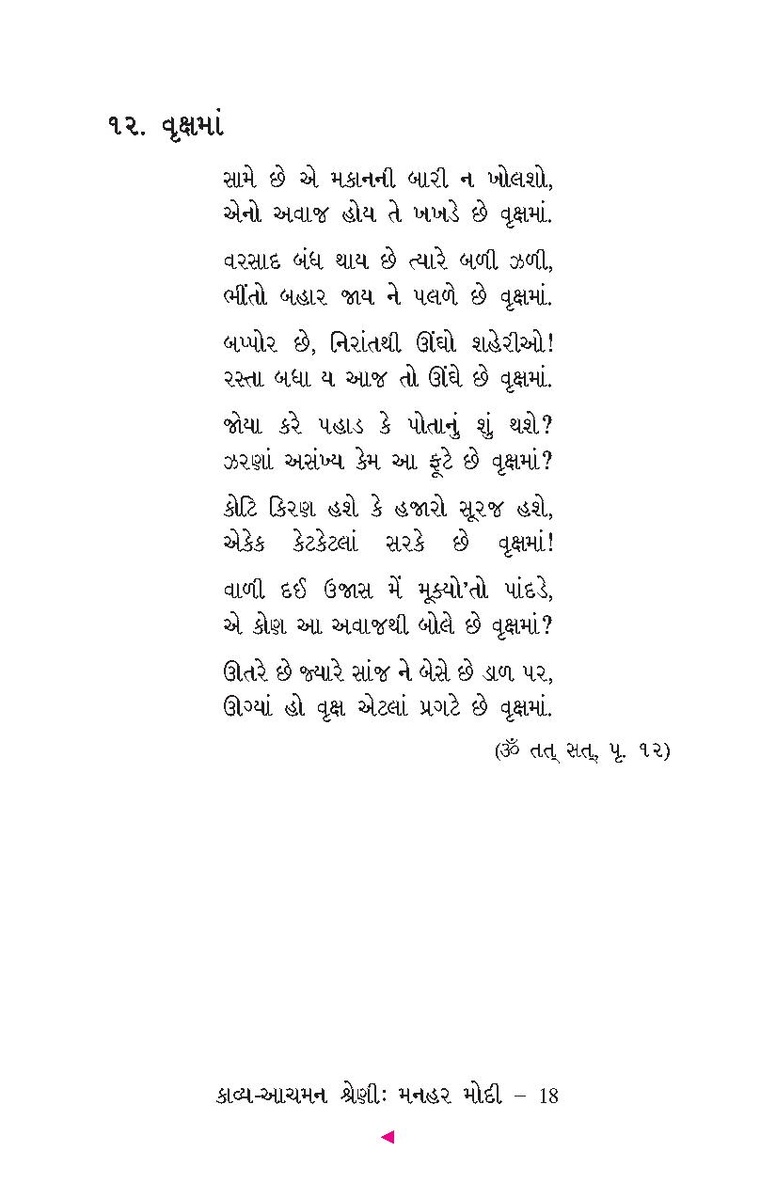 ૧૨. વૃક્ષમાં
સામે છે એ મકાનની બારી ન ખોલશો,
એનો અવાજ હોય તે ખખડે છે વૃક્ષમાં.
વરસાદ બંધ થાય છે ત્યારે બળી ઝળી,
ભીંતો બહાર જાય ને પલળે છે વૃક્ષમાં.
બપ્પોર છે, નિરાંતથી ઊંઘો શહેરીઓ!
રસ્તા બધા ય આજ તો ઊંઘે છે વૃક્ષમાં.
જોયા કરે પહાડ કે પોતાનું શું થશે?
ઝરણાં અસંખ્ય કેમ આ ફૂટે છે વૃક્ષમાં?
કોટિ કિરણ હશે કે હજારો સૂરજ હશે,
એકેક કેટકેટલાં સરકે છે વૃક્ષમાં!
વાળી દઈ ઉજાસ મેં મૂક્યો’તો પાંદડે,
એ કોણ આ અવાજથી બોલે છે વૃક્ષમાં?
ઊતરે છે જ્યારે સાંજ ને બેસે છે ડાળ પર,
ઊગ્યાં હો વૃક્ષ એટલાં પ્રગટે છે વૃક્ષમાં.
(ૐ તત્ સત્, પૃ. ૧૨)
કાવ્ય-આચમન શ્રેણી: મનહર મોદી – 18